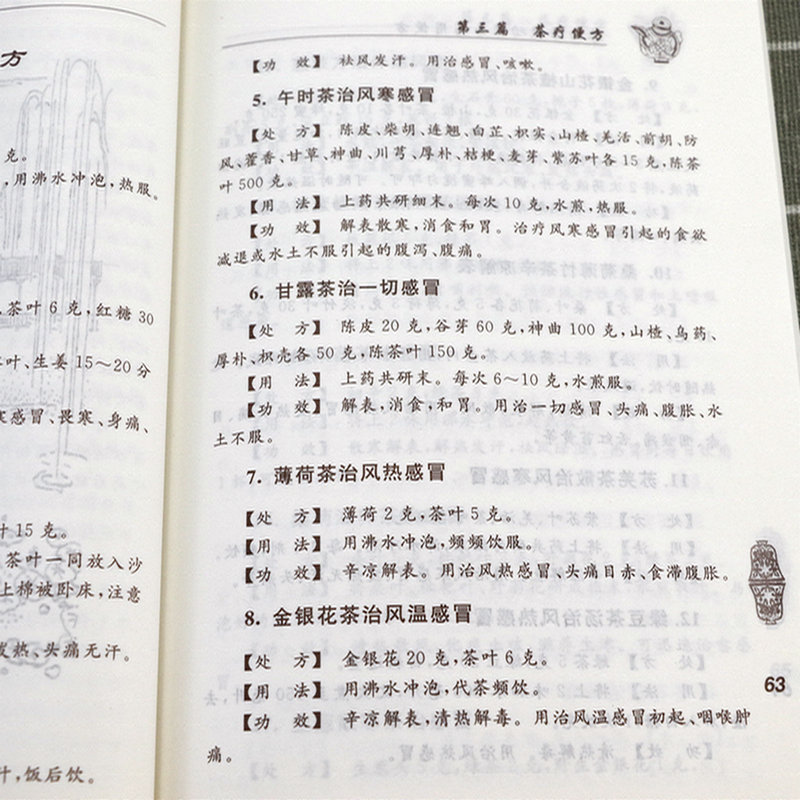 方
克。
，用沸水冲泡，热服。
茶叶6克，红糖30
叶、生姜15～20分
感冒、畏寒、身痛、
叶15克。
茶叶一同放入沙
上棉被卧床，注意
发热、头痛无汗。
汁，饭后饮。
第三篇 茶疗便方
【功 效】 祛风发汗。用治感冒、咳嗽。
5. 午时茶治风寒感冒
【处 方】 陈皮、柴胡、连翘、白芷、枳实、山楂、羌活、前胡、防
风、藿香、甘草、神曲、川芎、厚朴、桔梗、麦芽、紫苏叶各15克，陈茶
叶500克。
【用 法】 上药共研细末。每次10克，水煎，热服。
【功 效】 解表散寒，消食和胃。治疗风寒感冒引起的食欲
减退或水土不服引起的腹泻、腹痛。
6. 甘露茶治一切感冒
【处 方】 陈皮20克，谷芽60克，神曲100克，山楂、乌药、
厚朴、枳壳各50克，陈茶叶150克。
【用 法】 上药共研末。每次6～10克，水煎服。
【功 效】 解表，消食，和胃。用治一切感冒、头痛、腹胀、水
土不服。
7. 薄荷茶治风热感冒
【处 方】 薄荷2克，茶叶5克。
【用 法】 用沸水冲泡，频频饮服。
【功 效】 辛凉解表。用治风热感冒、头痛目赤、食滞腹胀。
8. 金银花茶治风温感冒
【处 方】 金银花20克，茶叶6克。
【用 法】 用沸水冲泡，代茶频饮。
【功 效】 辛凉解表，清热解毒。用治风温感冒初起、咽喉肿
痛。
63